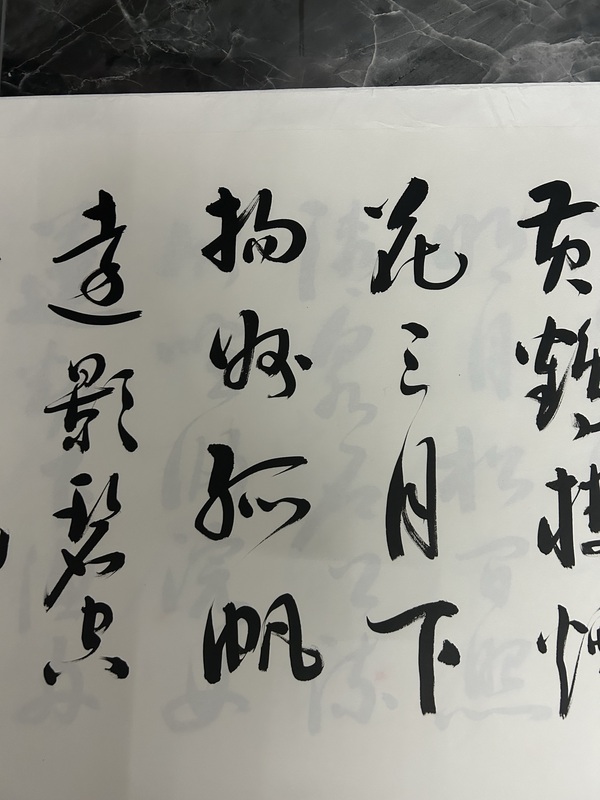 黄鹤楼烟
花三月下
扬州孤帆
远影碧空